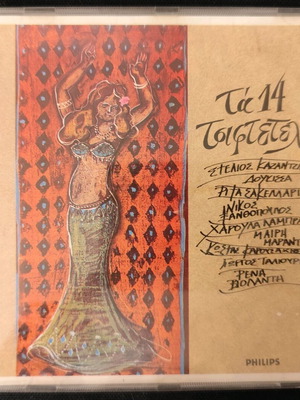 Τά 14
Τσιφτετέλ
ΣΤΕΛΙΟΣ ΚΑΖΑΝΤΖ
ΔΟΥΚΙΣΣΑ
ΡΙΤΑ ΣΑΚΕΛΛΑΡΙ
ΝΙΚΟΣ
ΞΑΝΘΟΠΟΥΛΟΣ
ΧΑΡΟΥΛΑ ΛΑΜΠΡ
ΜΑΙΡΗ
ΜΑΡΑΝΤ
ΓΙΩΡΓΟΣ ΤΑΛΙΟΥΡ
ΡΕΝΑ
PHILIPS